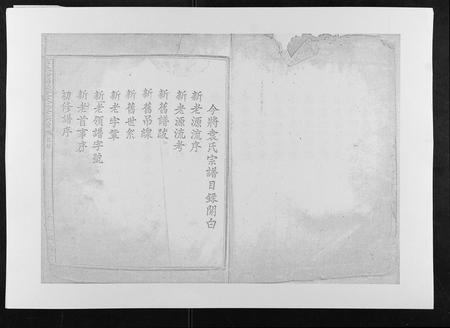 今將袁氏宗譜目錄開白
新老源流序
新老源流考
新舊譜跋
新舊吊線
新舊世系
新老字輩
新老領譜字號
新老首事序
初修譜序